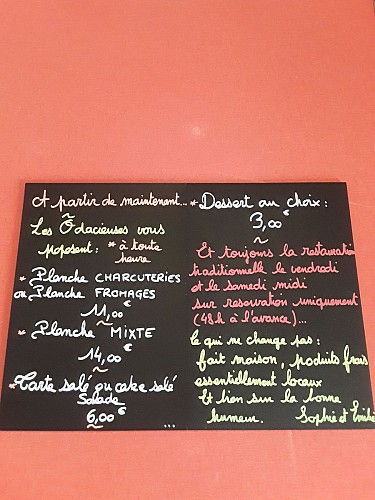 A partir de maintenant...
Les Ôdacieuses vous
proposent : * à toute
heure
* Planche CHARCUTERIES
ou Planche FROMAGES
11,00 €
* Planche MIXTE
14,00 €
* Tarte salé ou cake salé
Salade
6,00 €
...
* Dessert au choix :
3,00 €
~
Et toujours la restauration
traditionnelle le vendredi
et le samedi midi
sur reservation uniquement
(48h à l'avance)...
Ce qui ne change pas :
fait maison, produits frais
essentiellement locaux
Et bien sur la bonne
humeur. Sophie et Emilie